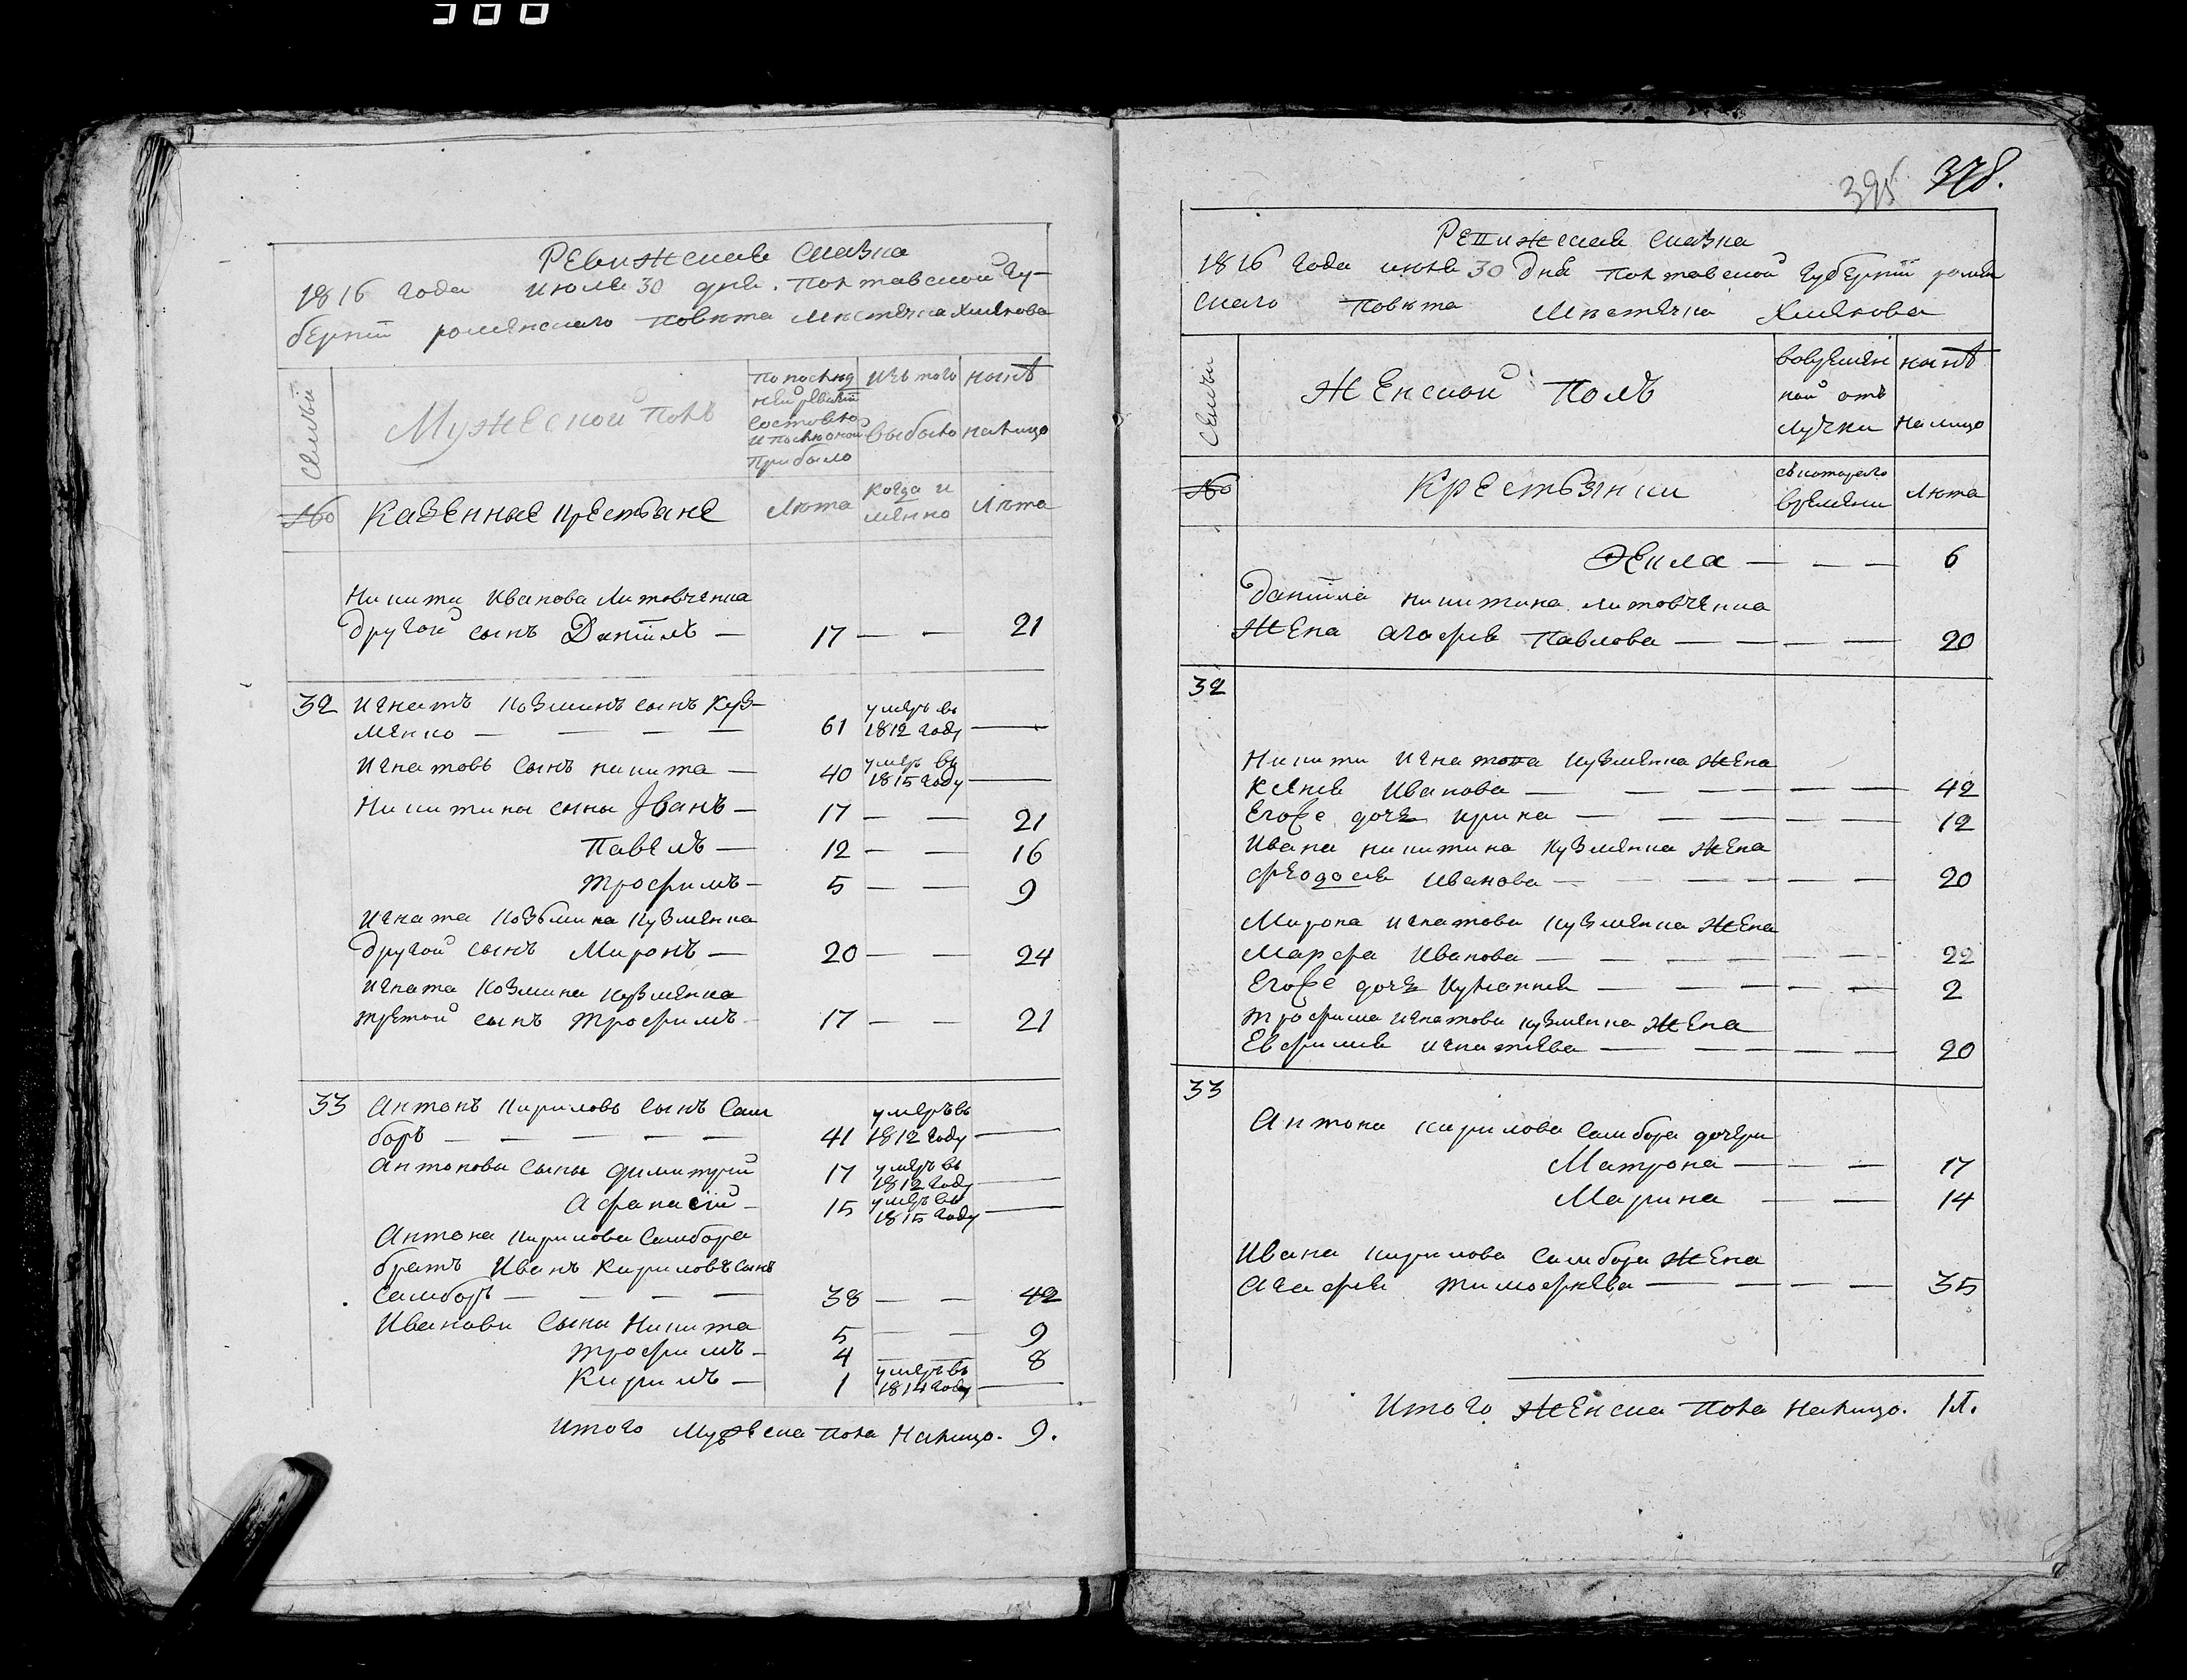 300
Ревижская сказка
1816 года июля 30 дня. Полтавской Гу-
берніи роменскаго повѣта мѣстечка Хмелова
Семьи
Мужеской полъ
по послѣд
ней ревизіи
состояло
и послѣ оной
прибыло
изъ того
выбыло
нынѣ
налицо
№
Казенные крестьяне
лѣта
когда и
менно
лѣта
Никиты Иванова Литовченка
другой сынъ Даніилъ — 17 — — 21
32 Игнатъ Козминъ сынъ Куз-
менко — — — — 61 умеръ въ 1812 году —
Игнатовъ сынъ никита — 40 умеръ въ 1815 году —
Никитины сыны Иванъ — 17 — — 21
Павелъ — 12 — — 16
трофимъ — 5 — — 9
Игната Козьмина Кузменка
другой сынъ Миронъ — 20 — — 24
Игната Козмина кузменка
третой сынъ трофимъ — 17 — — 21
33 Антонъ Кириловъ сынъ Сам
боръ — — — — — 41 умеръ въ 1812 году —
Антоновы сыны димитрий 17 умеръ въ 1812 году —
Афанасій — 15 умеръ въ 1815 году —
Антона Кирилова Самбора
братъ Иванъ Кириловъ сынъ
Самборъ — — — — 38 — — 42
Ивановы сыны Никита 5 — — 9
трофимъ — 4 — — 8
Кирилъ — 1 умеръ въ 1814 году —
Итого Мужеска пола налицо. 9.
395 378.
Ревижская сказка
1816 года июля 30 дня полтавской губерніи ромен
скаго повѣта мѣстечка Хмелова
Семьи
Женской полъ
вовремян
ной отъ
лучки
нынѣ
налицо
№
Крестьянки
съ котораго
времени
лѣта
Фекла — — — 6
Даніила никитина литовченка
жена агафія Павлова — — — — 20
32
Никиты Игнатова Кузменка жена
Ксенія Иванова — — — — — — 42
Егоже дочь ирина — — — — — — 12
Ивана никитина Кузменка жена
феодосія Иванова — — — — — — 20
Мирона игнатова кузменка жена
Марфа Иванова — — — — — — 22
Егоже дочь Иулианнія — — — — — 2
трофима игнатова кузменка жена
Евфимія Игнатіева — — — — — 20
33
Антона кирилова Самбора дочери
Матрона — — — 17
Марина — — 14
Ивана кирилова самбора жена
Агафія тимофѣева — — — — 35
Итого женска пола налицо. 11.